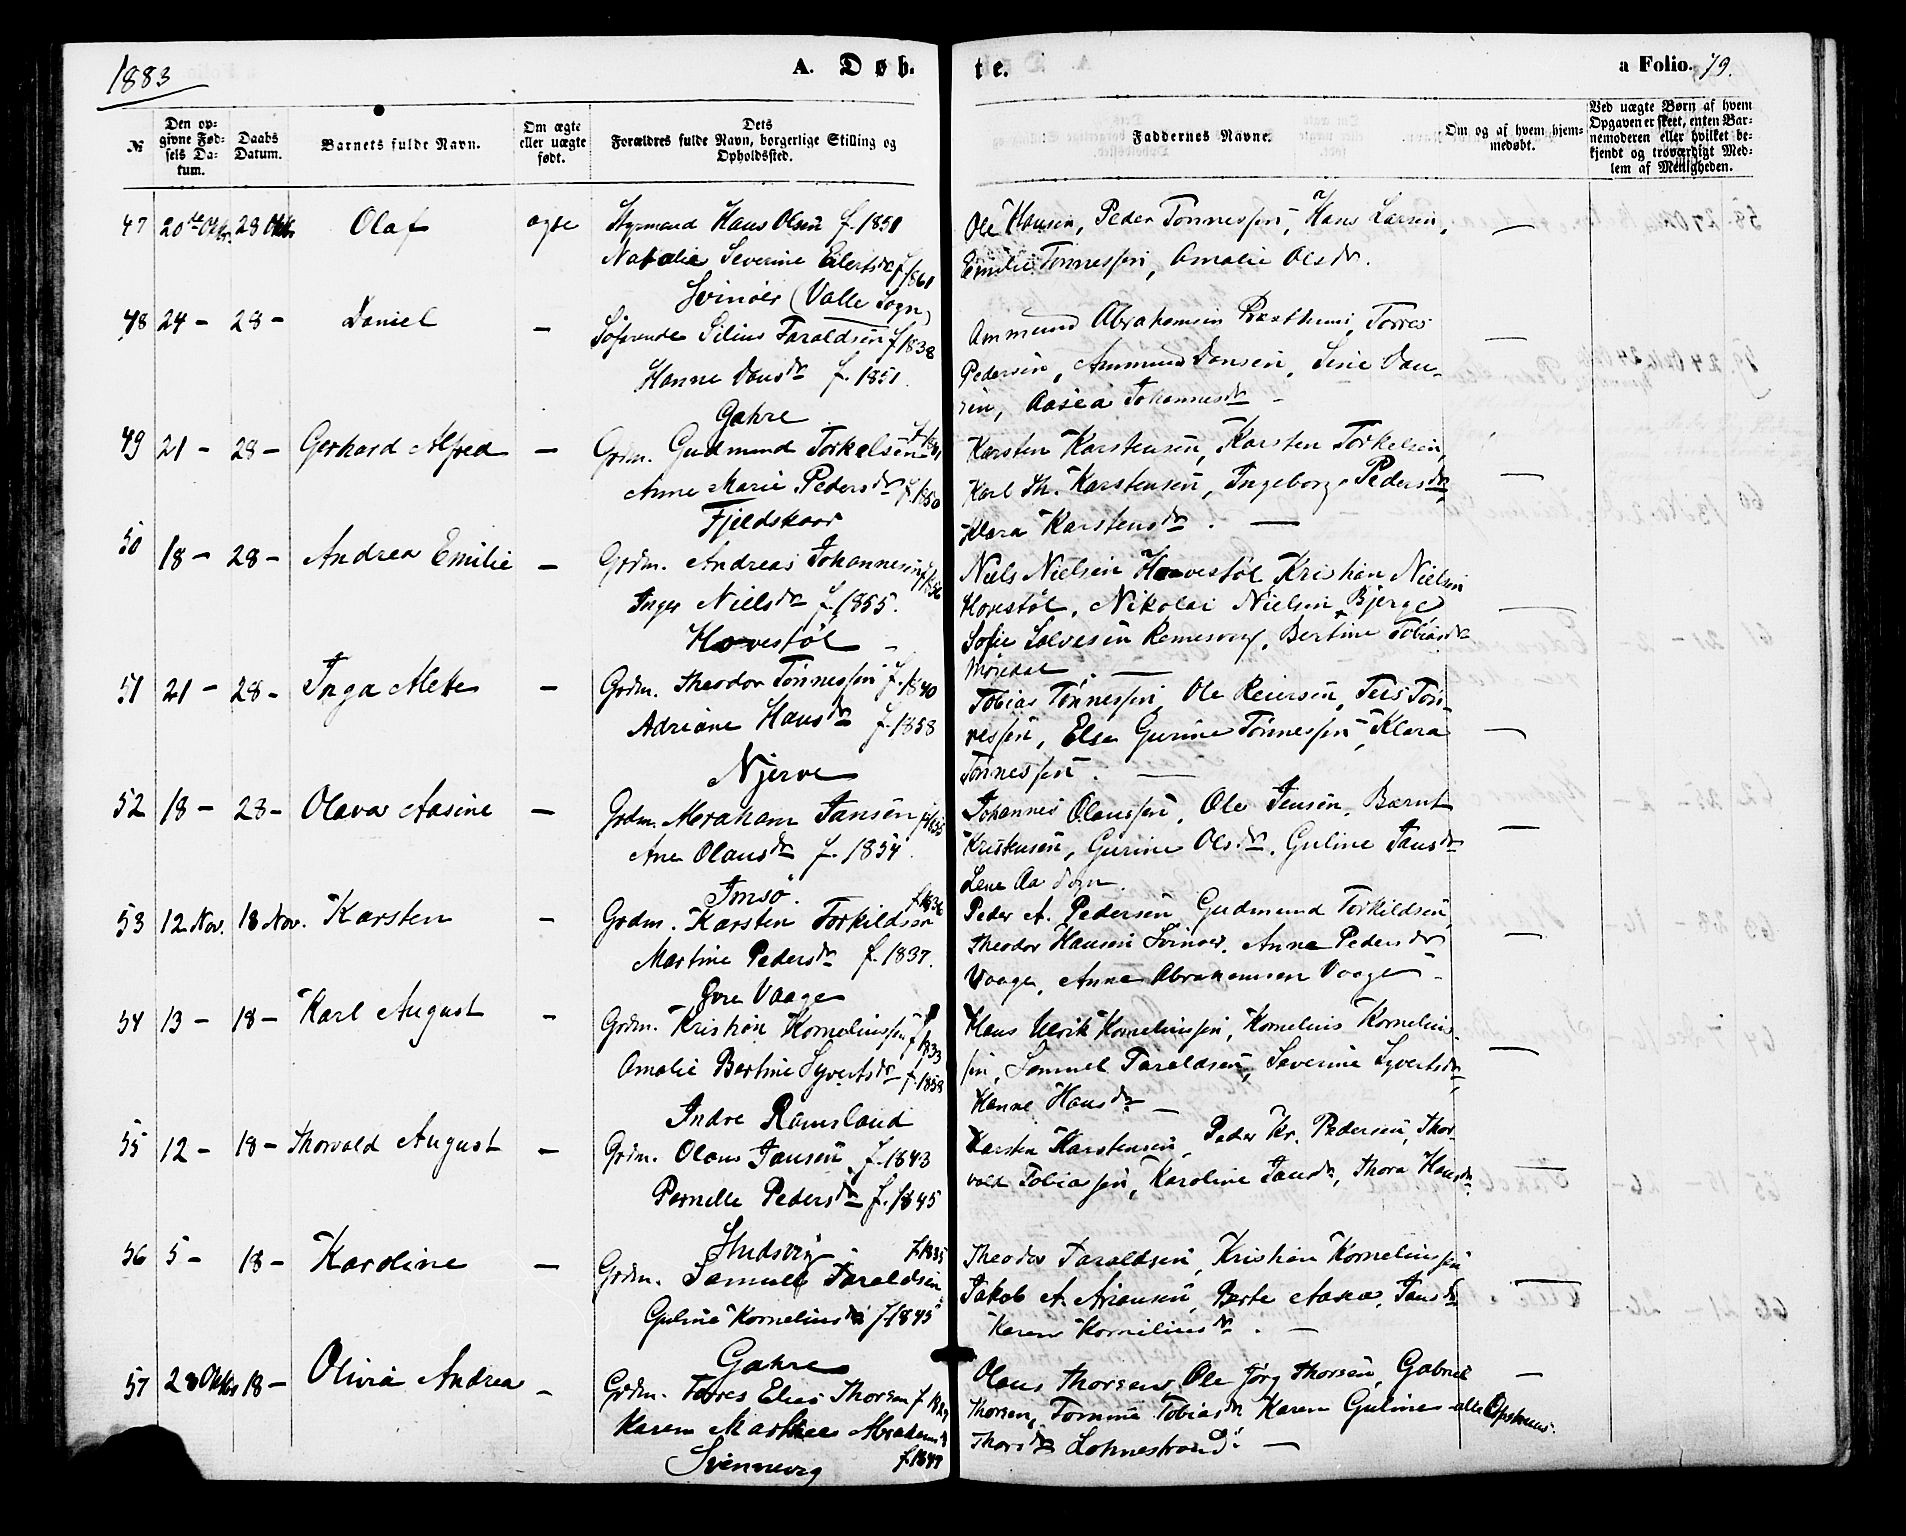 1883
A. Døb-
te.
a Folio. 79.
№
Den op-
givne Fød-
sels Da-
tum.
Daabs
Datum.
Barnets fulde Navn.
Om ægte
eller uægte
født.
Dets
Forældres fulde Navn, borgerlige Stilling og
Opholdssted.
Faddernes Navne.
Om og af hvem hjem-
medøbt.
Ved uægte Børn af hvem
Opgaven er skeet, enten Bar-
nemoderen eller hvilket be-
kjendt og troværdigt Med-
lem af Menigheden.
47 20de Oktbr. 28 Oktbr. Olaf ægte Styrmand Hans Olsen f. 1851
Natalie Severine Eilertsdr f. 1861
Svinøer (Valle Sogn)
Ole Hansen, Peder Tønnessen, Hans Larsen,
Emilie Tønnessen, Amalie Olsdr.
48 24 – 28 – Daniel – Søfarende Silius Taraldsen f 1838
Hanne Dansdr f. 1851.
Gahre
Ammund Abrahamsen Torres
Pedersen, Ammund Dansen, Sine Dan-
sen, Aasea Johannesdr –
49 21 – 28 – Gerhard Alfred – Grdm. Gudmund Torkelsen
Anne Marie Pedersdr f 1850
Fjeldskaar
Karsten Karstensen, Karsten Torkelsen,
Karl Th. Karstensen, Ingeborg Pedersdr,
Klara Karstensdr. –
50 18 – 28 – Andrea Emilie – Grdm. Andreas Johannesen f 1856
Inger Nielsdr f. 1855.
Hovestøl
Niels Nielsen Hovestøl, Kristian Nielsen
Hovestøl, Nikolai Nielsen Bjerge
Sofie Salvesen Remesvig, Bertine Tobiasdr
51 21 – 28 – Inga Alete – Grdm. Theodor Tønnessen f. 1840
Adriane Hansdr f. 1858
Njerve
Tobias Tønnessen, Ole Reiersen, Ters Tøn-
nessen, Else Gurine Tønnessen, Klara
Tønnessen. –
52 18 – 28 – Olava Aasine – Grdm. Abraham Jansen
Ane Olausdr f. 1854.
Imsø.
Johannes Olaussen, Ole Jensen, Bærnt
Kristensen, Gurine Olsdr, Guline Jansdr
Lene Aa Sogn.
53 12 Nov. 18 Nov. Karsten – Grdm. Karsten Torkildsen f. 1836
Martine Pedersdr f. 1837.
Øvre Vaage
Peder A. Pedersen, Gudmund Torkildsen,
Theodor Hansen Svinøer, Anne Pedersdr
Vaage, Anne Abrahamsen Vaage –
54 13 – 18 – Karl August – Grdm. Kristian Korneliussen f 1833
Amalie Bertine Syvertsdr f. 1858
Indre Ramsland
Hans Ulrik Korneliussen, Kornelius Kornelius-
sen, Samuel Taraldsen, Severine Syvertsdr,
Hanne Hansdr –
55 12 – 18 – Thorvald August – Grdm. Olaus Jansen f. 1843
Pernille Pedersdr f. 1845
Studsvig
Karsten Karstensen, Peder Kr. Pedersen, Thor-
vald Tobiassen, Karoline Jansdr, Thora Hansdr.
56 5 – 18 – Karoline – Grdm. Samuel Taraldsen f. 1835
Guline Korneliusdr f. 1845
Gahre
Theodor Taraldsen, Kristian Korneliussen
Jakob A. Arianсen, Berte Aasea Jansdr
Karen Korneliusdr. –
57 28 Oktbr 18 – Olivia Andrea – Grdm. Torres Elias Thorsen
Karen Marthea
Svennevig f. 1849
Olaus Thorsen, Ole Jørg. Thorsen, Gabriel
Thorsen, Tomine Tobiasdr Karen Guline
Thorsdr Lohnestrand. –